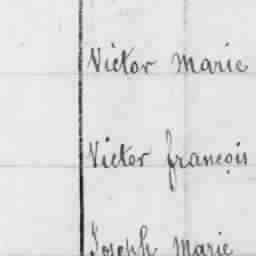 Victor Marie
Victor françois
Joseph Marie